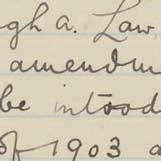 gh A. Law,
amendm
be intood
of 1903 a